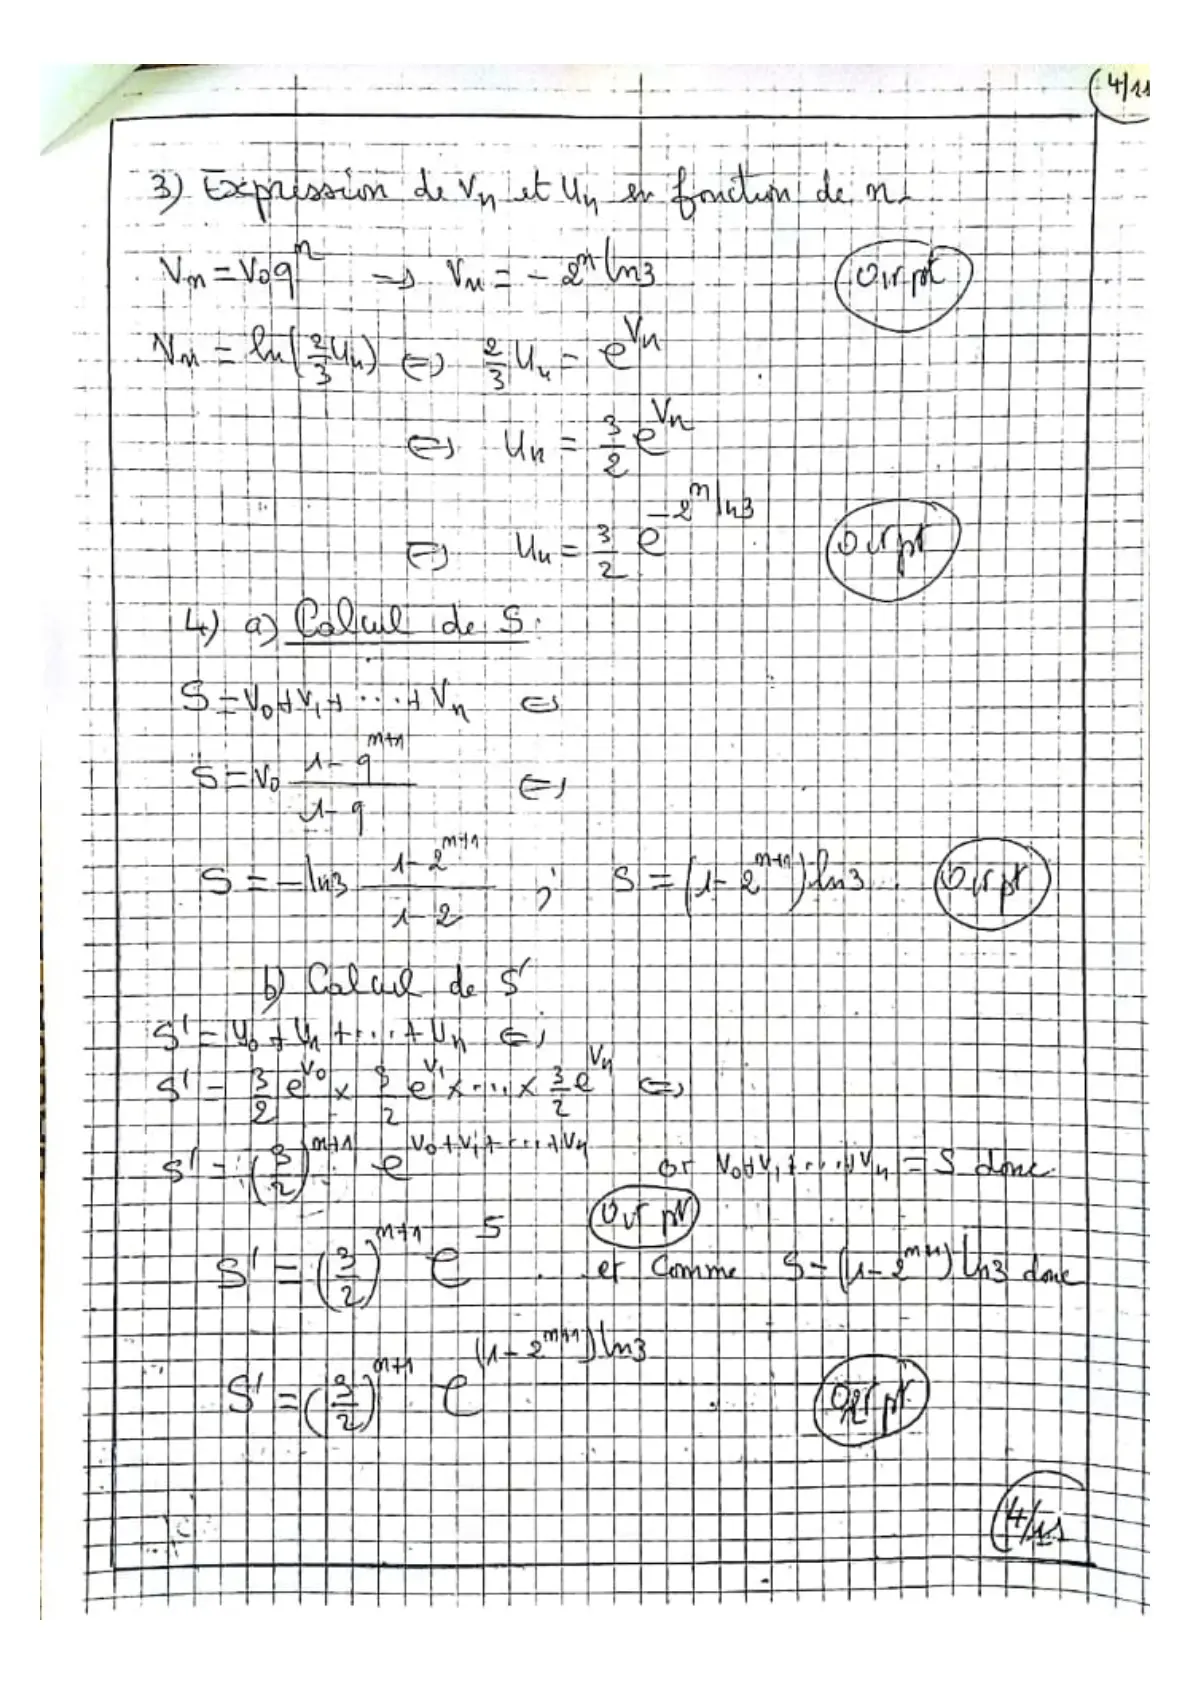 4/11
3) Expression de Vn et Un en fonction de n
Vn = V0 q^n => Vn = - 2^n ln3 0,25 pt
Vn = ln(2/3 Un) <=> 2/3 Un = e^Vn
<=> Un = 3/2 e^Vn
<=> Un = 3/2 e^(-2^n ln3) pt
4) a) Calcul de S.
S = V0 + V1 + .... + Vn <=>
S = V0 (1 - q^(n+1))/(1 - q) <=>
S = - ln3 (1 - 2^(n+1))/(1 - 2) ; S = (1 - 2^(n+1)) ln3. pt
b) Calcul de S'
S' = U0 + U1 + .... + Un <=>
S' = 3/2 e^V0 x 3/2 e^V1 x .... x 3/2 e^Vn <=>
S' = (3/2)^(n+1) e^(V0 + V1 + .... + Vn) or V0 + V1 + .... + Vn = S donc
pt
S' = (3/2)^(n+1) e^S . et comme S = (1 - 2^(n+1)) ln3 donc
S' = (3/2)^(n+1) e^((1 - 2^(n+1)) ln3) . pt
4/11